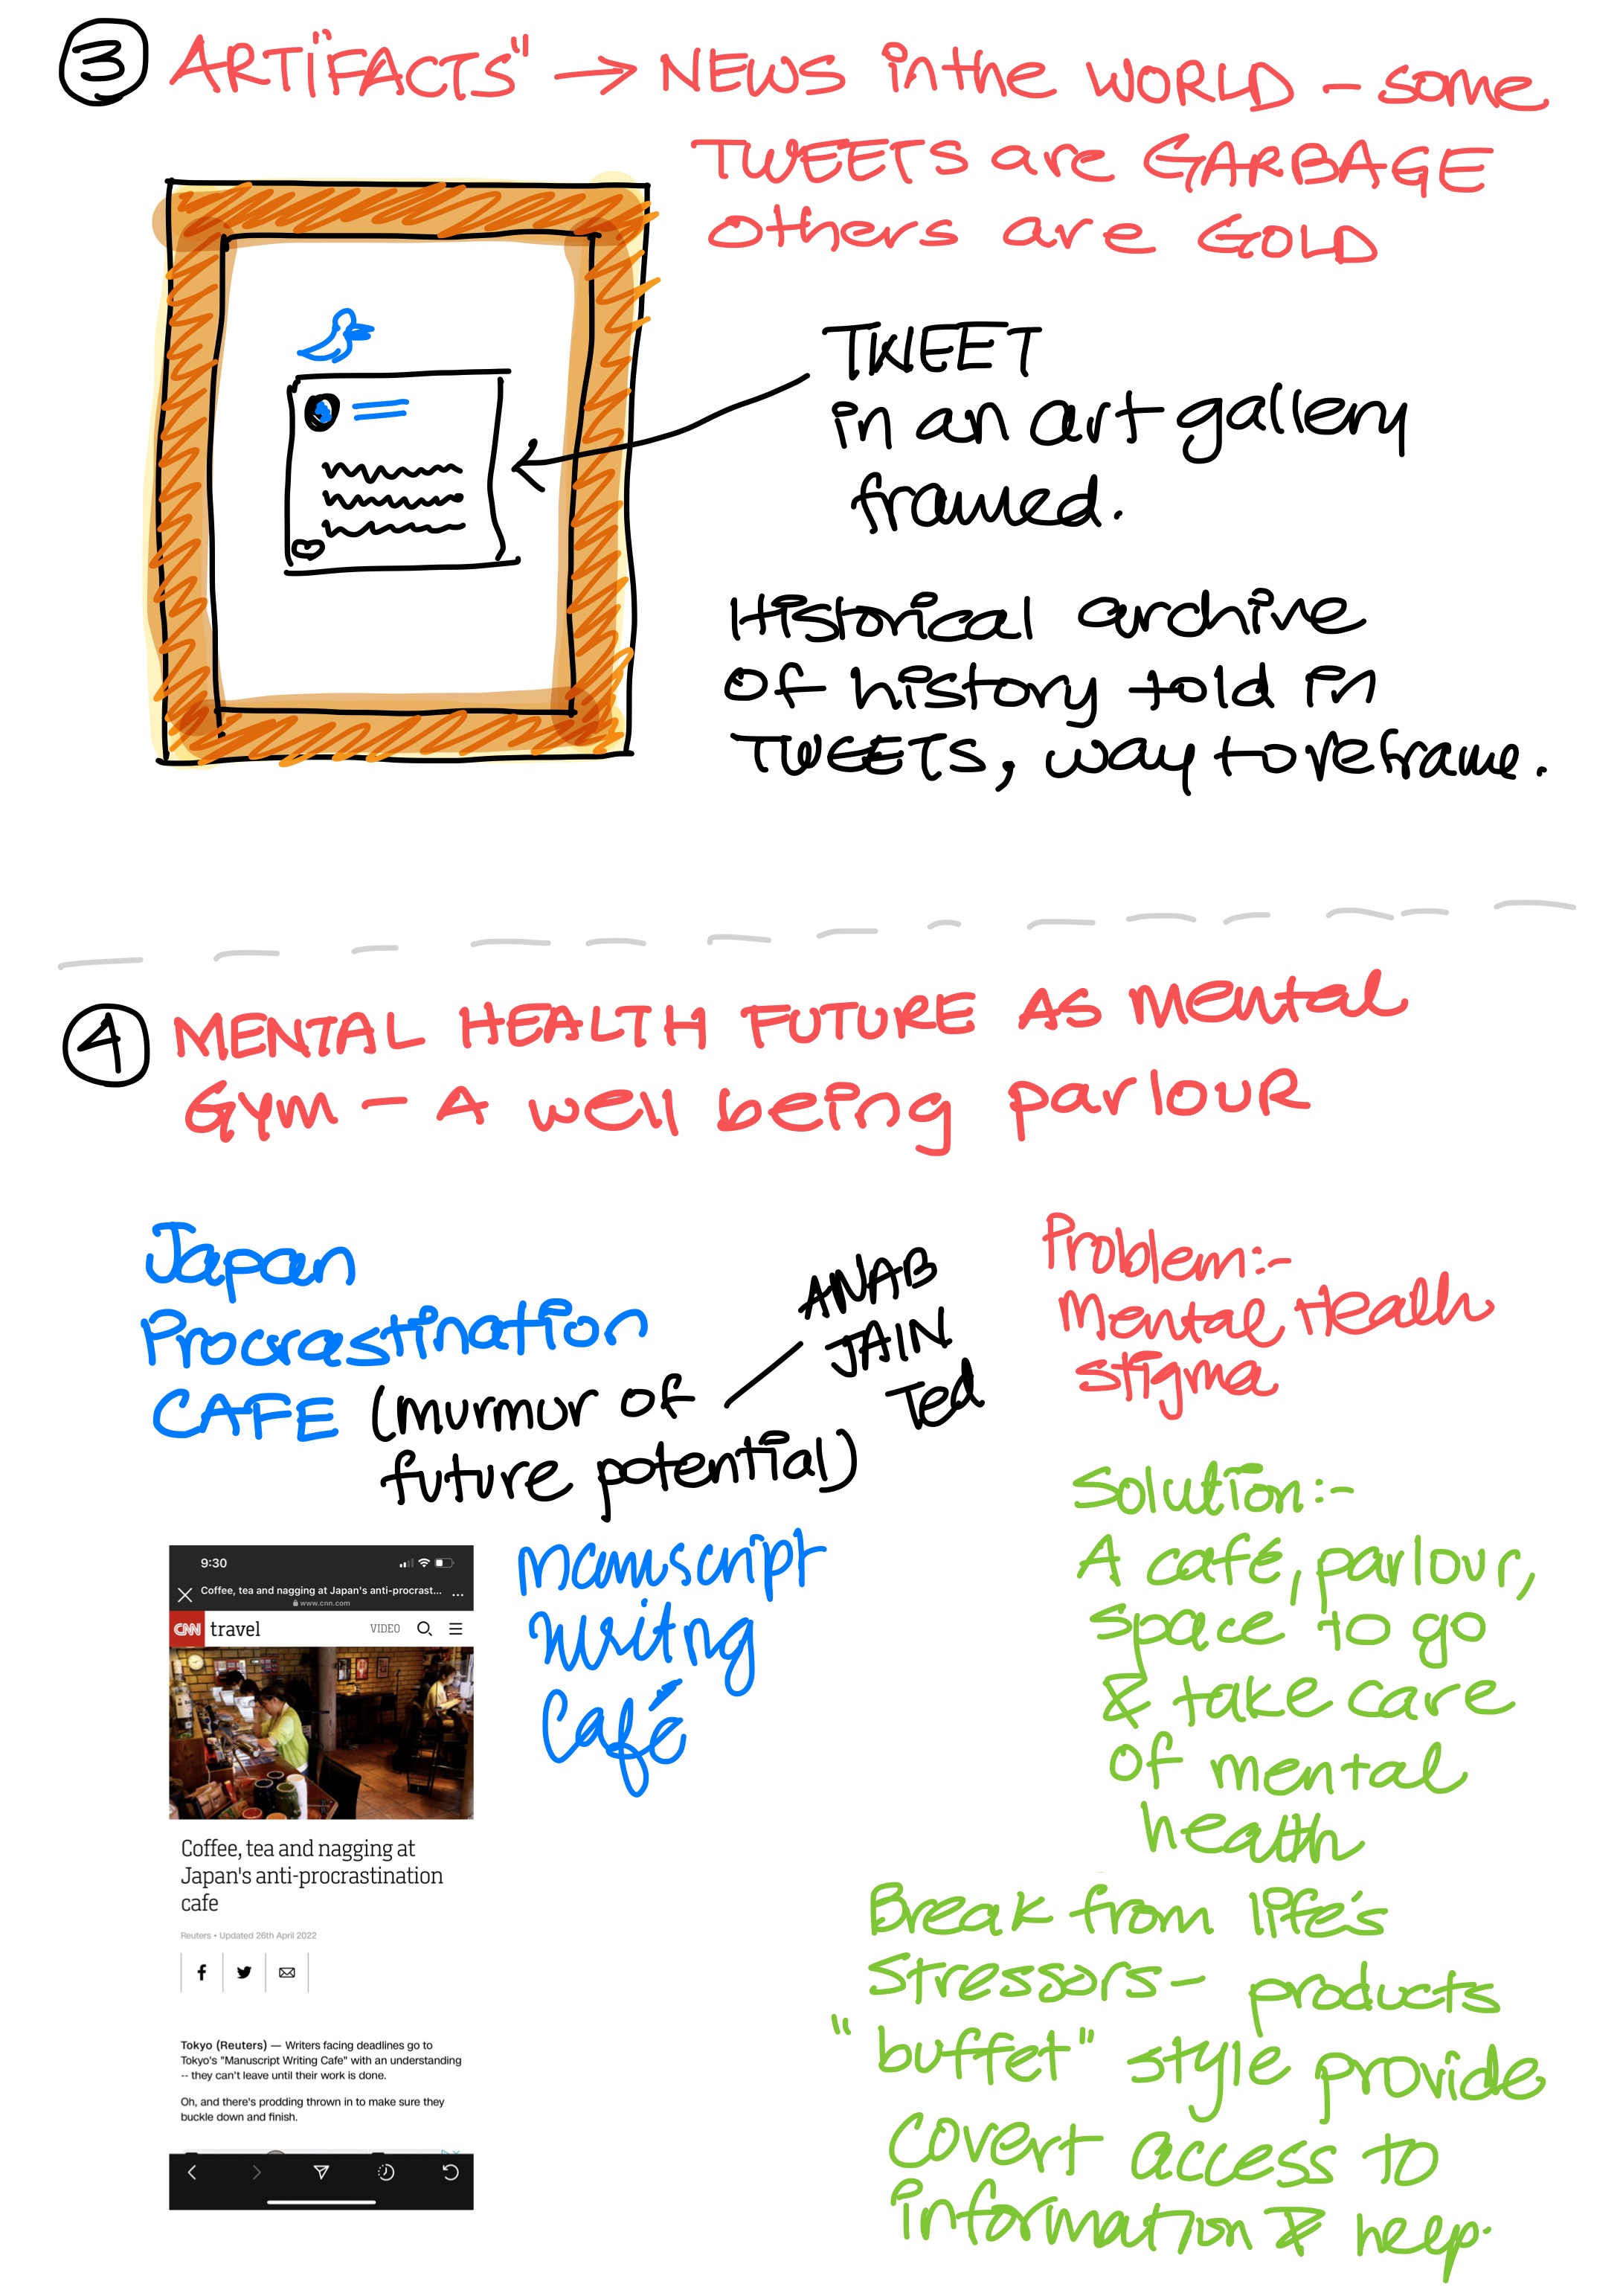 3 ARTI"FACTS" → NEWS in the WORLD – some
TWEETS are GARBAGE
others are GOLD
TWEET
in an art gallery
framed.
Historical archive
of history told in
TWEETS, way to reframe.
4 MENTAL HEALTH FUTURE AS mental
GYM – A well being parlouR
Japan
Procrastination
CAFE (murmur of
future potential)
ANAB
JAIN
Ted
Problem:-
Mental Health
stigma
Solution:-
A café, parlour,
space to go
& take care
of mental
health
Break from life's
stressors – products
"buffet" style provide
covert access to
information & help.
manuscript
writng
Café
9:30
Coffee, tea and nagging at Japan's anti-procrast... ...
www.cnn.com
CNN travel VIDEO
Coffee, tea and nagging at
Japan's anti-procrastination
cafe
Reuters • Updated 26th April 2022
Tokyo (Reuters) — Writers facing deadlines go to
Tokyo's "Manuscript Writing Cafe" with an understanding
-- they can't leave until their work is done.
Oh, and there's prodding thrown in to make sure they
buckle down and finish.